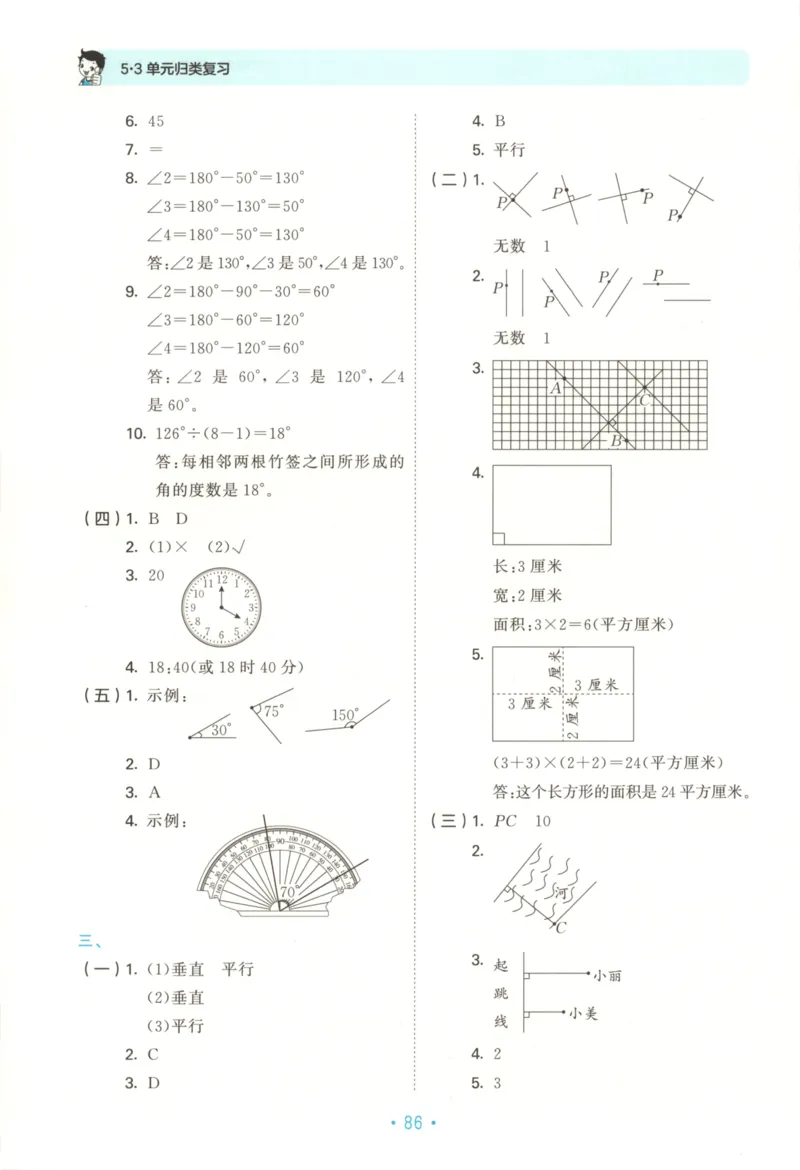 5·3 单元归类复习
6. 45
7. =
8. ∠2=180°-50°=130°
∠3=180°-130°=50°
∠4=180°-50°=130°
答:∠2是130°,∠3是50°,∠4是130°。
9. ∠2=180°-90°-30°=60°
∠3=180°-60°=120°
∠4=180°-120°=60°
答:∠2 是 60°,∠3 是 120°,∠4
是60°。
10. 126°÷(8-1)=18°
答:每相邻两根竹签之间所形成的
角的度数是18°。
(四)1. B D
2. (1)× (2)√
3. 20
12 1 2 3 4 5 6 7 8 9 10 11
4. 18:40(或18时40分)
(五)1. 示例:
30° 75° 150°
2. D
3. A
4. 示例:
70°
三、
(一)1. (1)垂直 平行
(2)垂直
(3)平行
2. C
3. D
4. B
5. 平行
(二)1.
P P P P
无数 1
2.
P P P P
无数 1
3.
A C B
4.
长:3厘米
宽:2厘米
面积:3×2=6(平方厘米)
5.
2厘米 3厘米
3厘米 2厘米
(3+3)×(2+2)=24(平方厘米)
答:这个长方形的面积是24平方厘米。
(三)1. PC 10
2.
河
C
3. 起跳线
小丽
小美
4. 2
5. 3
·86·